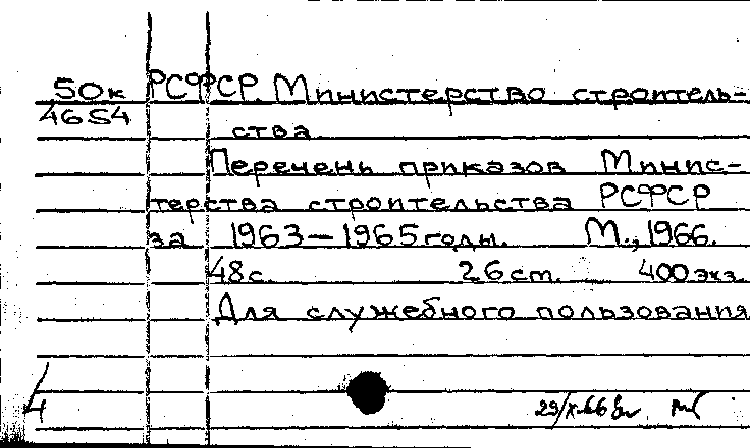 50к РСФСР. Министерство строитель-
4654
ства
Перечень приказов Минис-
терства строительства РСФСР
за 1963–1965 годы. М., 1966.
48 с. 26 см. 400 экз.
Для служебного пользования
4